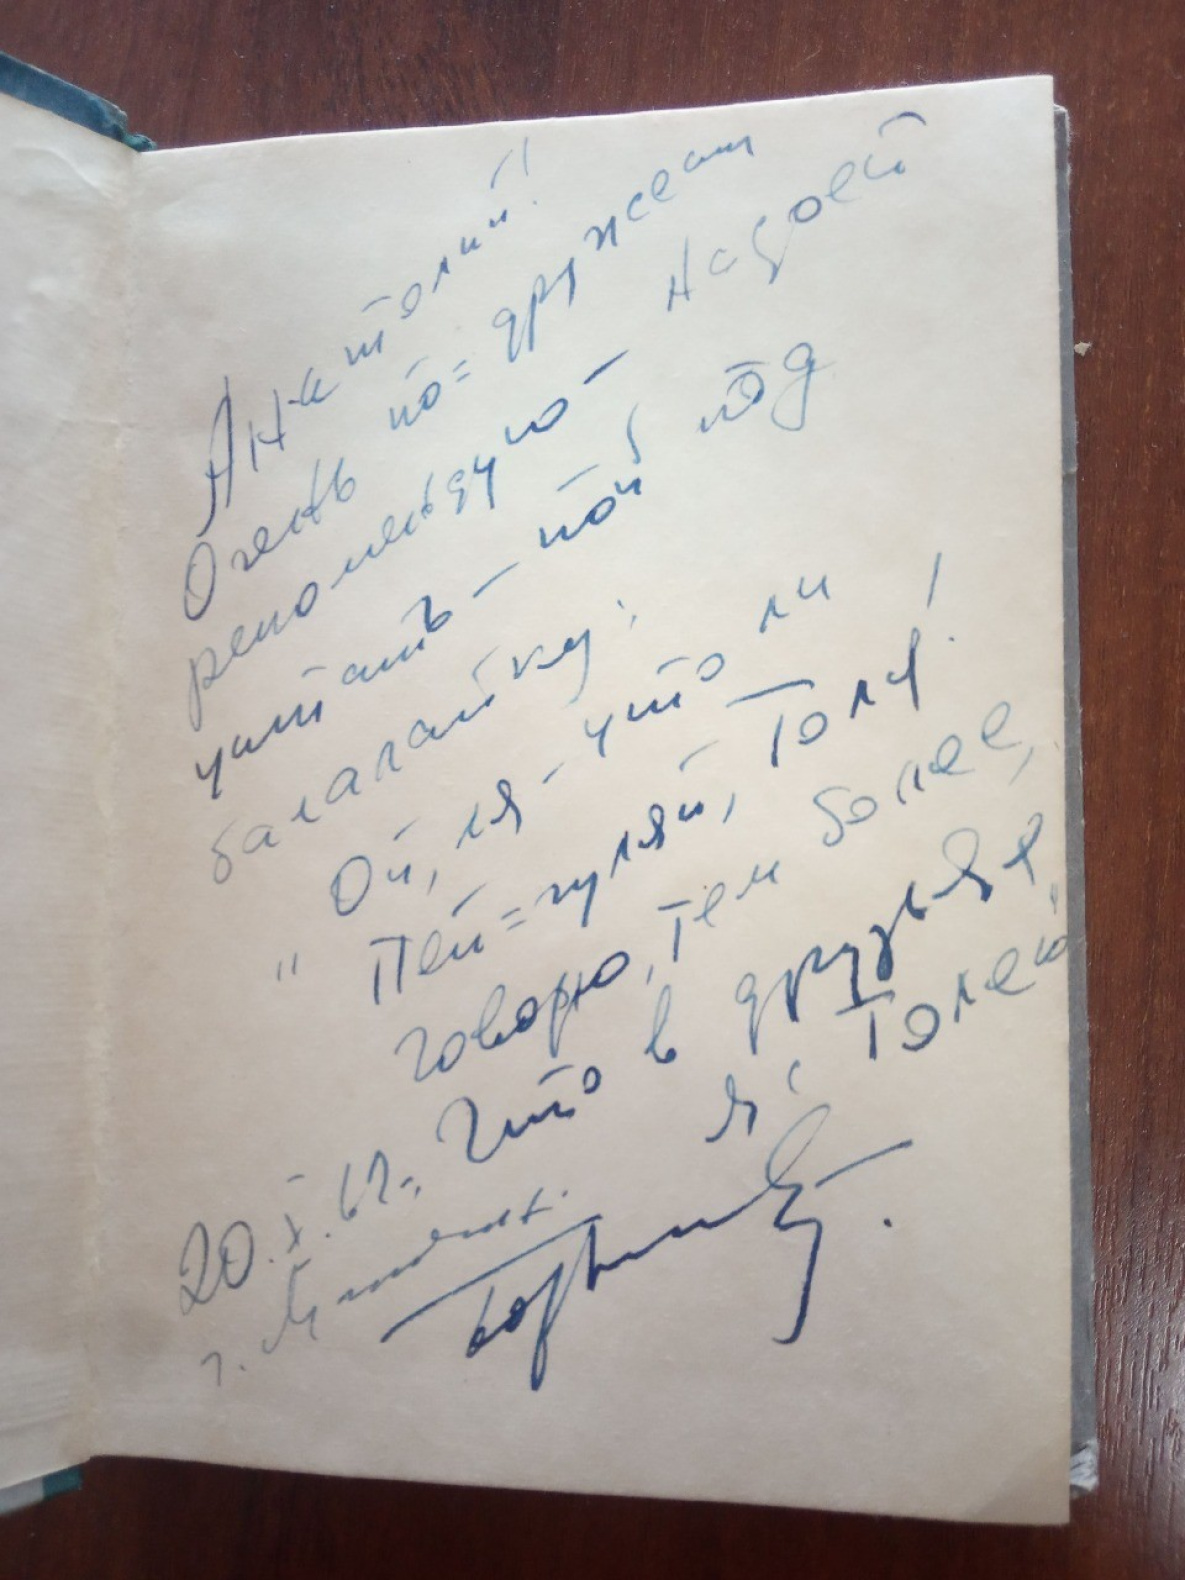 Анатолий!
Очень по-дружески
рекомендую – надоест
читать – пой под
балалайку:
Ой, ля – что ли
"Пей-гуляй, Толя!
говорю, тем более,
Что в друзьях
я с Толей"
20.X.62г.
г.